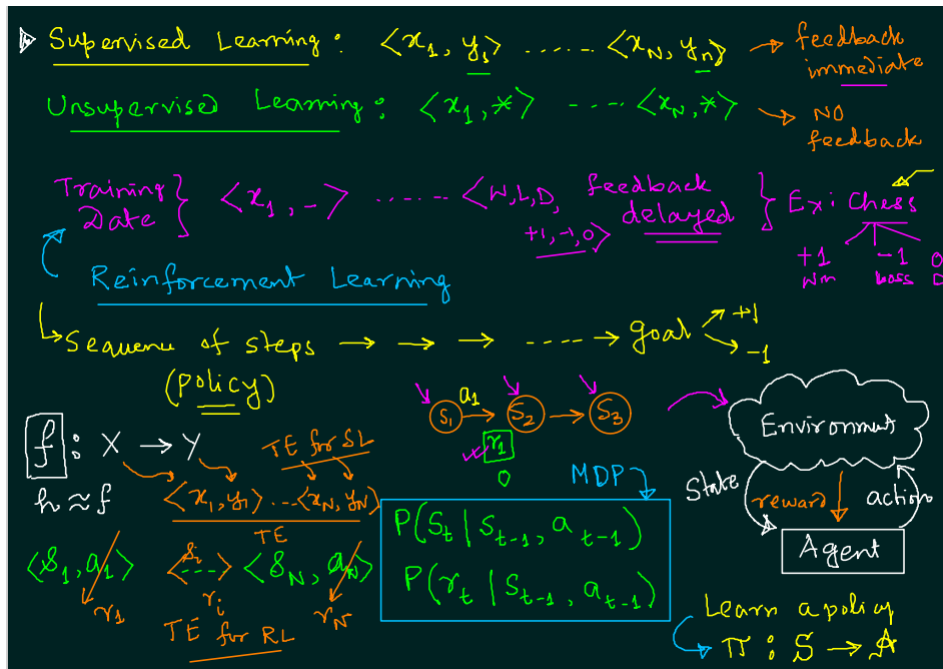 Supervised Learning : <x₁, y₁> ..... <x_N, y_n> → feedback immediate
Unsupervised Learning : <x₁, *> ---- <x_N, *> → NO feedback
Training Date } <x₁, _> ...... <W, L, D, +1, -1, 0> feedback delayed } Ex: Chess
+1 -1 0
Win Loss D
Reinforcement Learning
↳ Sequence of steps → → → ---- → goal +1 -1
(policy)
S₁ a₁ → S₂ → S₃
r₁
0
Environment
State reward action
Agent
f : X → Y TE for SL
h ≈ f <x₁, y₁> ... <x_N, y_N>
TE
MDP
P(S_t | S_{t-1}, a_{t-1})
P(r_t | S_{t-1}, a_{t-1})
<S₁, a₁> <S_i ----> <S_N, a_N>
r₁ r_i r_N
TE for RL
Learn a policy
π : S → A